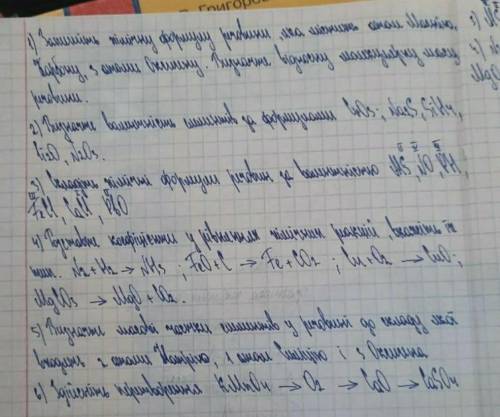 Григоров
1) Запишіть хімічну формулу речовини яка містить атом Магнію,
Карбону, 3 атоми Оксигену. Визначте відносну молекулярну масу
речовини.
2) Визначте валентність елементів за формулами CrO3; Na2S, SiH4,
Li2O, N2O3.
3) Складіть хімічні формули речовин за валентністю
FeCl, CaH,
4) Розставте коефіцієнти у рівняннях хімічних реакцій, вкажіть їх
тип. N2 + H2 → NH3 ; FeO + C → Fe + CO2 ; Cu + O2 → CuO;
MgCO3 → MgO + CO2.
5) Визначте масові частки елементів у речовині до складу якої
входять 2 атоми Натрію, 1 атом і 3 Оксигена
6) Здійсніть перетворення KMnO4 → O2 → CaO → CaSO4
5)
MgO